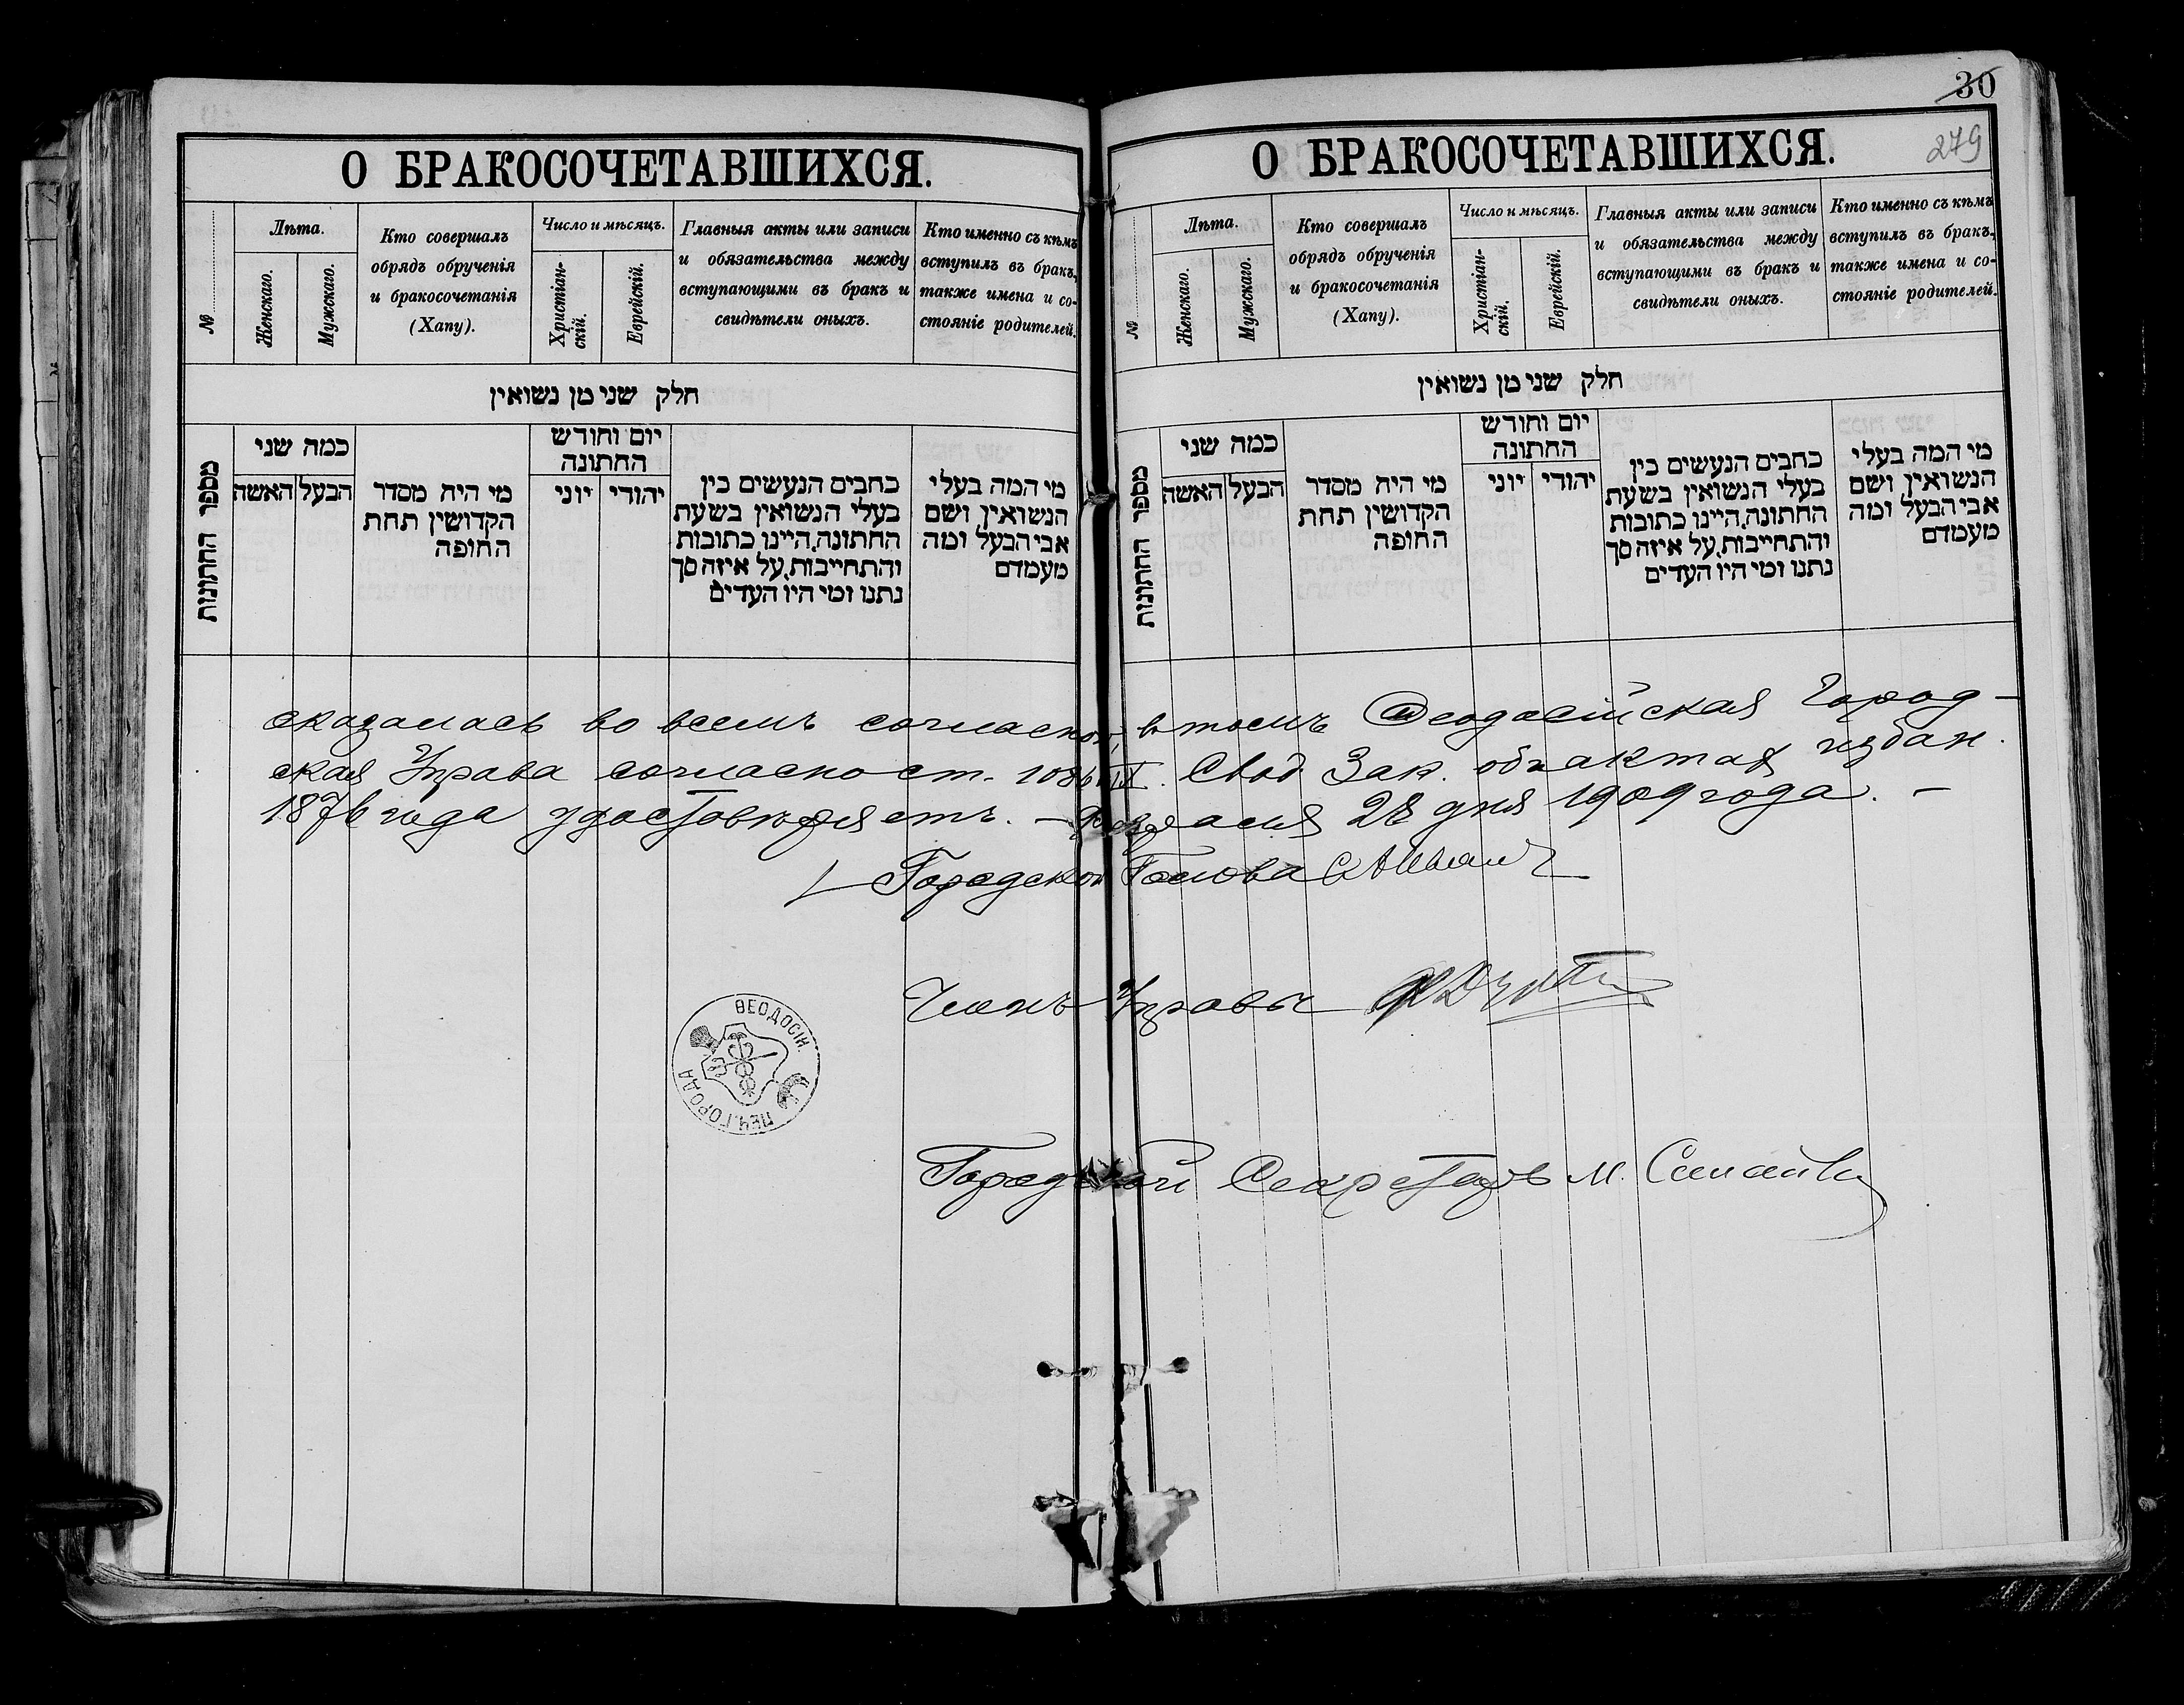 О БРАКОСОЧЕТАВШИХСЯ.
№
Лѣта.
Женскаго.
Мужскаго.
Кто совершалъ
обрядъ обрученія
и бракосочетанія
(Хапу).
Число и мѣсяцъ.
Христіан-
скій.
Еврейскій.
Главныя акты или записи
и обязательства между
вступающими въ бракъ и
свидѣтели оныхъ.
Кто именно съ кѣмъ
вступилъ въ бракъ,
также имена и со-
стояніе родителей.
חלק שני מן נשואין
מספר החתונות
כמה שני
האשה
הבעל
מי היה מסדר
הקדושין תחת
החופה
יום וחודש
החתונה
יוני
יהודי
כתבים הנעשים בין
בעלי הנשואין בשעת
החתונה, היינו כתובות
והתחייבות, על איזה סך
נתנו ומי היו העדים
מי המה בעלי
הנשואין ושם
אבי הבעל ומה
מעמדם
30
279
О БРАКОСОЧЕТАВШИХСЯ.
№
Лѣта.
Женскаго.
Мужскаго.
Кто совершалъ
обрядъ обрученія
и бракосочетанія
(Хапу).
Число и мѣсяцъ.
Христіан-
скій.
Еврейскій.
Главныя акты или записи
и обязательства между
вступающими въ бракъ и
свидѣтели оныхъ.
Кто именно съ кѣмъ
вступилъ въ бракъ,
также имена и со-
стояніе родителей.
חלק שני מן נשואין
מספר החתונות
כמה שני
האשה
הבעל
מי היה מסדר
הקדושין תחת
החופה
יום וחודש
החתונה
יוני
יהודי
כתבים הנעשים בין
בעלי הנשואין בשעת
החתונה, היינו כתובות
והתחייבות, על איזה סך
נתנו ומי היו העדים
מי המה בעלי
הנשואין ושם
אבי הבעל ומה
מעמדם
сказалась во всемъ согласною, въ томъ Ѳеодосійская Город-
ская Управа согласно ст. IX. Свод. Зак. объ актах издан.
1876 года удостовѣряетъ. – 28 дня 1909 года. –
Городской Голова
Членъ Управы
ѲЕОДОСІИ. ПЕЧ. ГОРОДА
Городской Секретарь М.